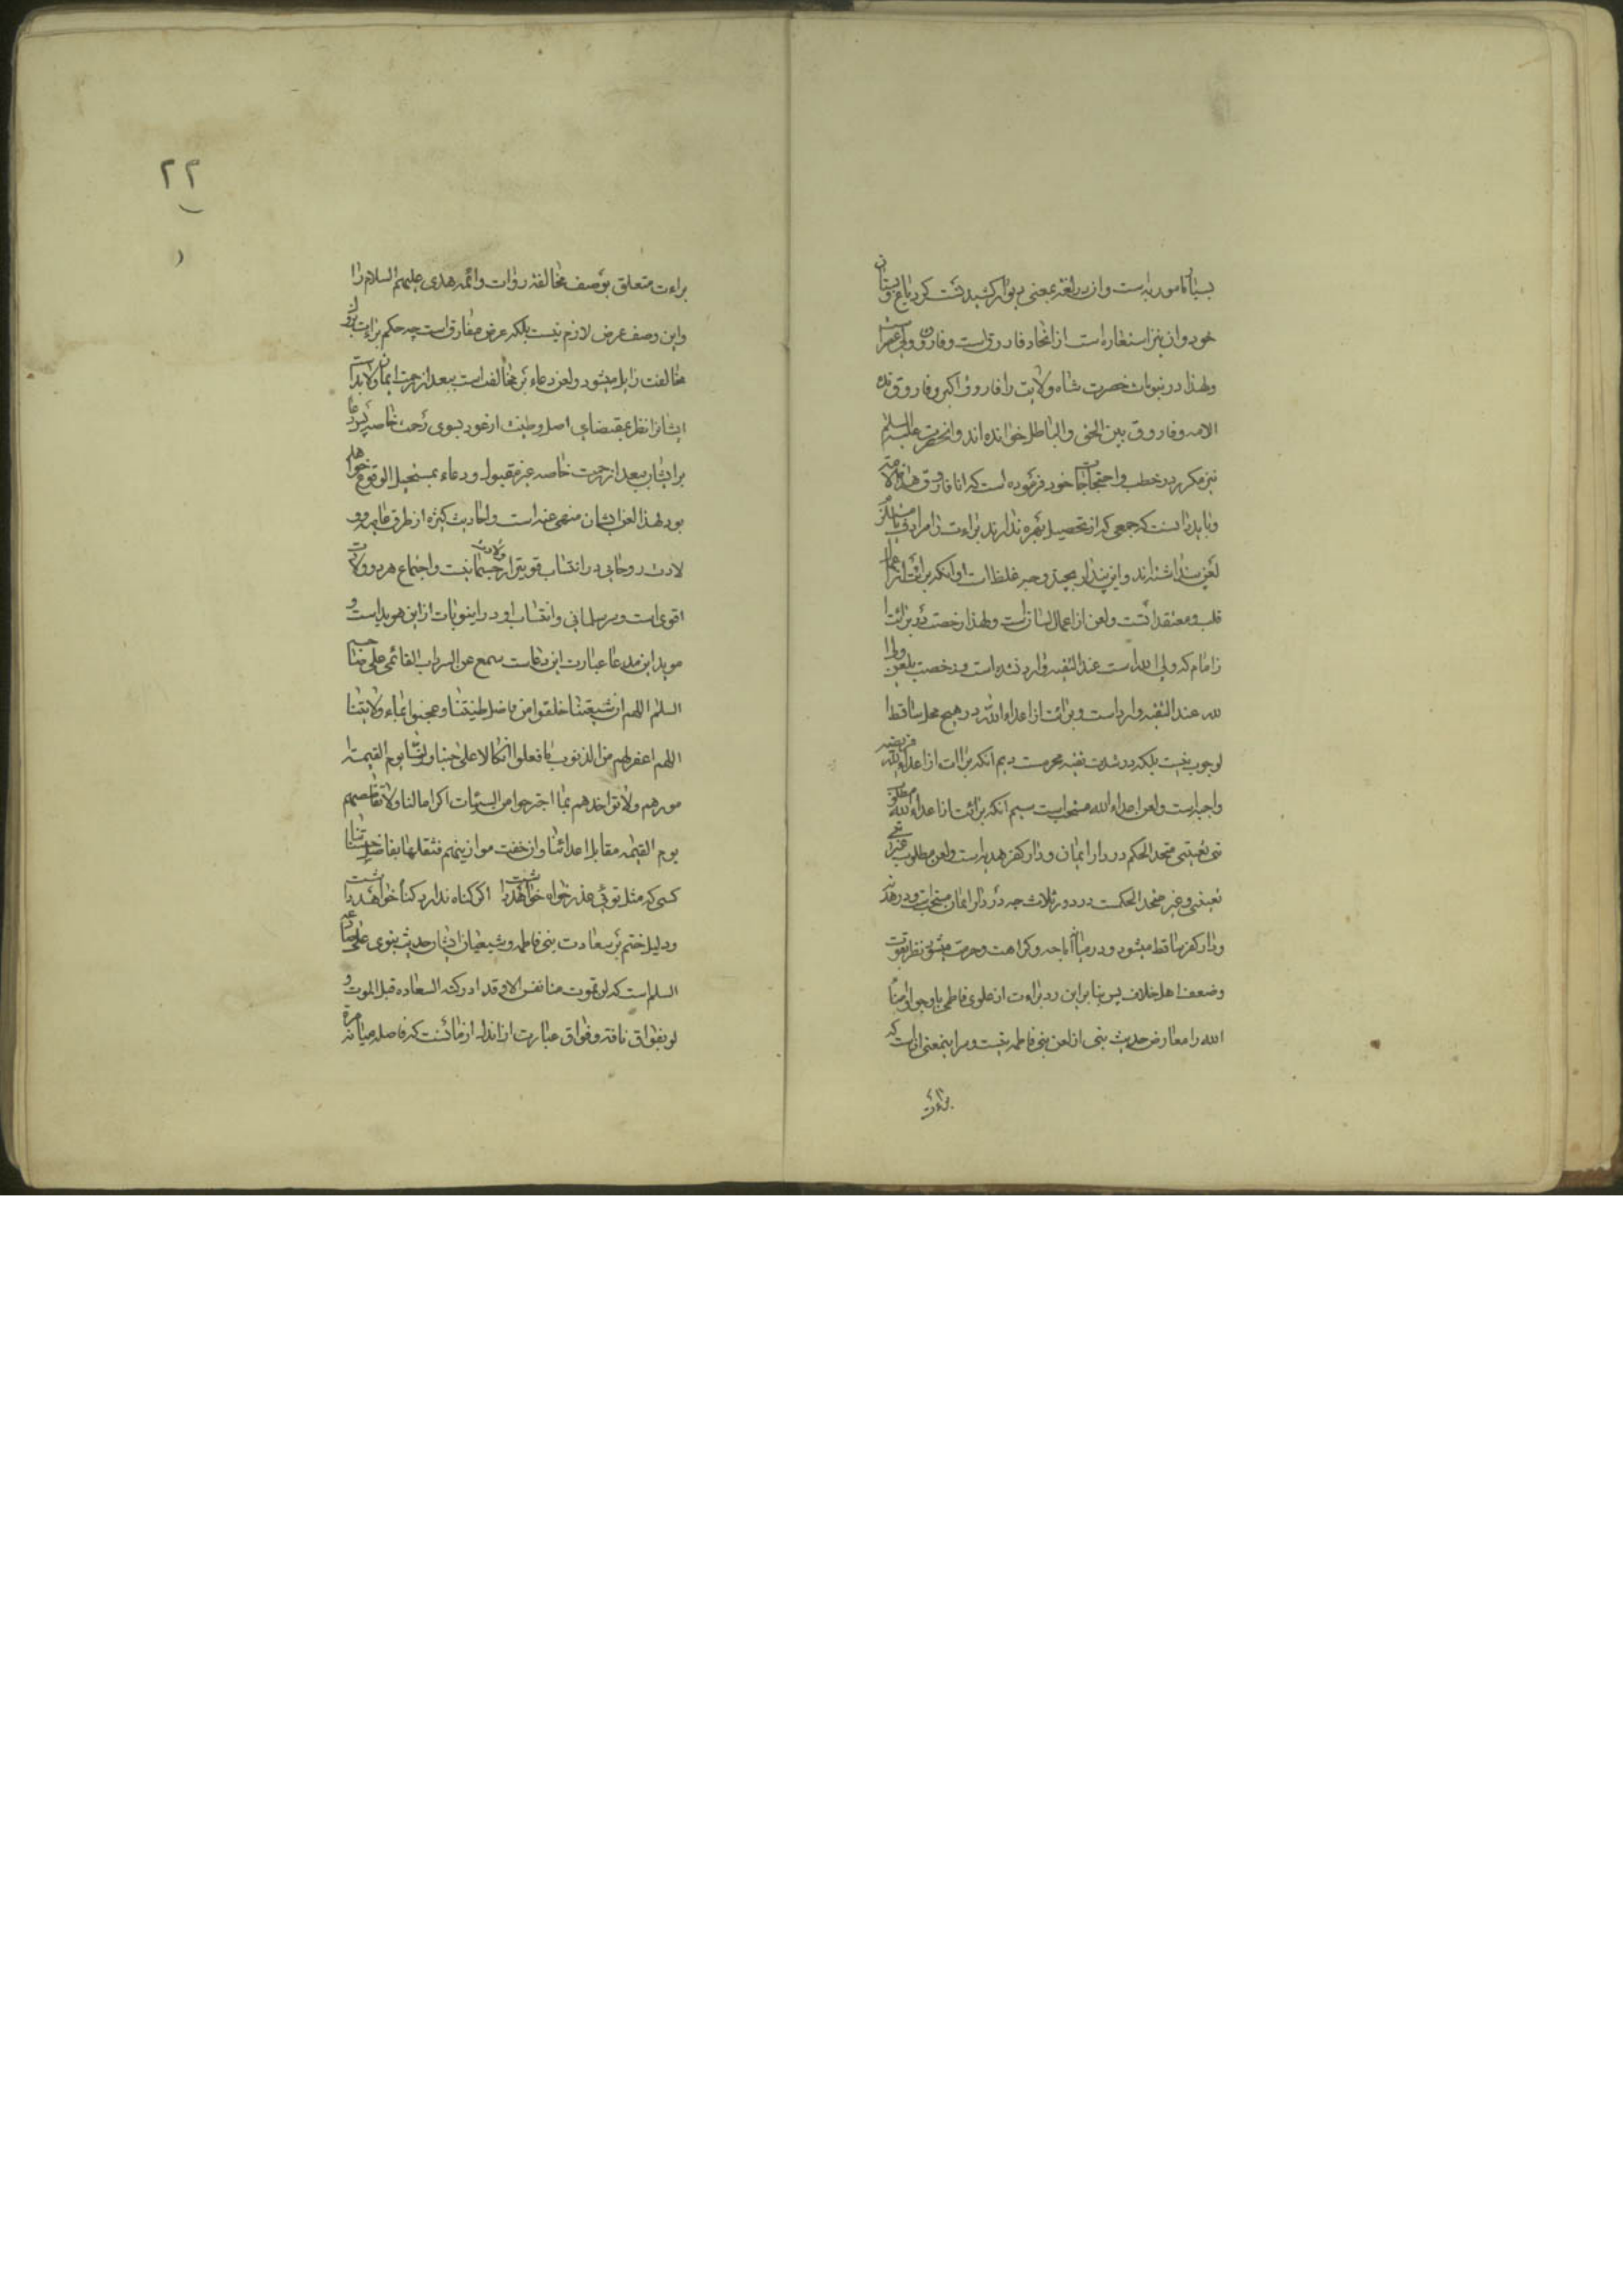 بسیار مامور به است و از در لغة بمعنی دیوار کشیدنست کرد باغ و بستان
خود و ان نیز استعاره است از اتحاد فاروق است و فاروق
و لهذا در نبویات حضرت شاه ولایت را فاروق اکبر و فاروق
الامه و فاروق بین الحق و الباطل خوانده اند و انحضرت علیه السلم
نیز مکرر در خطب و احتجاجات خود فرموده است که انا فاروق هذه الامة
و باید دانست که جمعی که از تحصیل بهره ندارند براءت را مرادف
لعن پنداشته اند و این پندار بچند وجه غلط است اول انکه برائت از اعمال
قلب و معتقد است و لعن از اعمال لسان است و لهذا رخصت در برائت
از امام که ولی الله است عند التقیه وارد نشده است و رخصت بلعن ولی
لله عند التقیه وارد است و برائت از اعداء الله در هیچ محل ساقط
لوجوب نیست بلکه در شدت تقیه محرمست دیم انکه برائت از اعداء الله فریضه
واجبست و لعن اعداء الله مستحب است سیم انکه برائت از اعداء الله
متحد الحکم در دار ایمان و دار کفر هدنه است و لعن مطلوب غیر
تعینی و غیر متحد الحکمست در دور ثلاث چه در دار ایمان مستحب است و در هدنه
و دار کفر ساقط میشود و در میان اباحه و کراهت و حرمت میشود نظر بقوت
و ضعف اهل خلاف پس بنا بر این رد براءت از علوی فاطمی
الله را معارض حدیث نهی از لعن بنی فاطمه نیست و سر اینمعنی انست که
براءت
۲۲
براءت متعلق بوصف مخالفة روات و ائمه هدی علیهم السلام را
و این وصف عرض لازم نیست بلکه عرض مفارق است چه حکم براءت
مخالفت زایل میشود و لعن دعاء بر مخالف است ببعد از رحمت
ایشانرا نظر بمقتضای اصل و طینت از عود بسوی رحمت خاصه
بر ایشان ببعد از رحمت خاصه غیر مقبول و دعاء بمستحیل الوقوع خواهد
بود لهذا لعن ایشان منهی عنه است و احادیث کثیره از طرق عامه و و
لادت روحانی در انتساب قویتر از ولادت جسمانیست و اجتماع هر دو ولادت
اقوی است و سر سلمانی و انتساب او در اینوبات از این هویداست و
موید این مدعا عبارت این دعاست سمع عن السرداب القائمی علی صاحبه
السلم اللهم ان شیعتنا خلقوا من فاضل طینتنا و عجنوا بماء ولایتنا
اللهم اغفر لهم من الذنوب ما فعلوا اتکالا علی حبنا و ولنا یوم القیمة
مورهم و لا تؤاخذهم بما اجترحوا من السیئات اکراما لنا و لا تقاصصهم
یوم القیمه مقابل اعدائنا و ان خفت موازینهم فثقلها بفاضل حسناتنا
کسی که مثل توئی عذرخواه خواهد داشت اکر کناه ندارد کناه خواهد داشت
و دلیل ختم بر سعادت بنی فاطمه و شیعیان ایشان حدیث نبوی علی صادعه
السلم است که لن تموت منا نفس الا و قد ادرکته السعاده قبل الموت و
لو بفواق ناقة و فواق عبارت از انقدر از زمانست که فاصله میانه